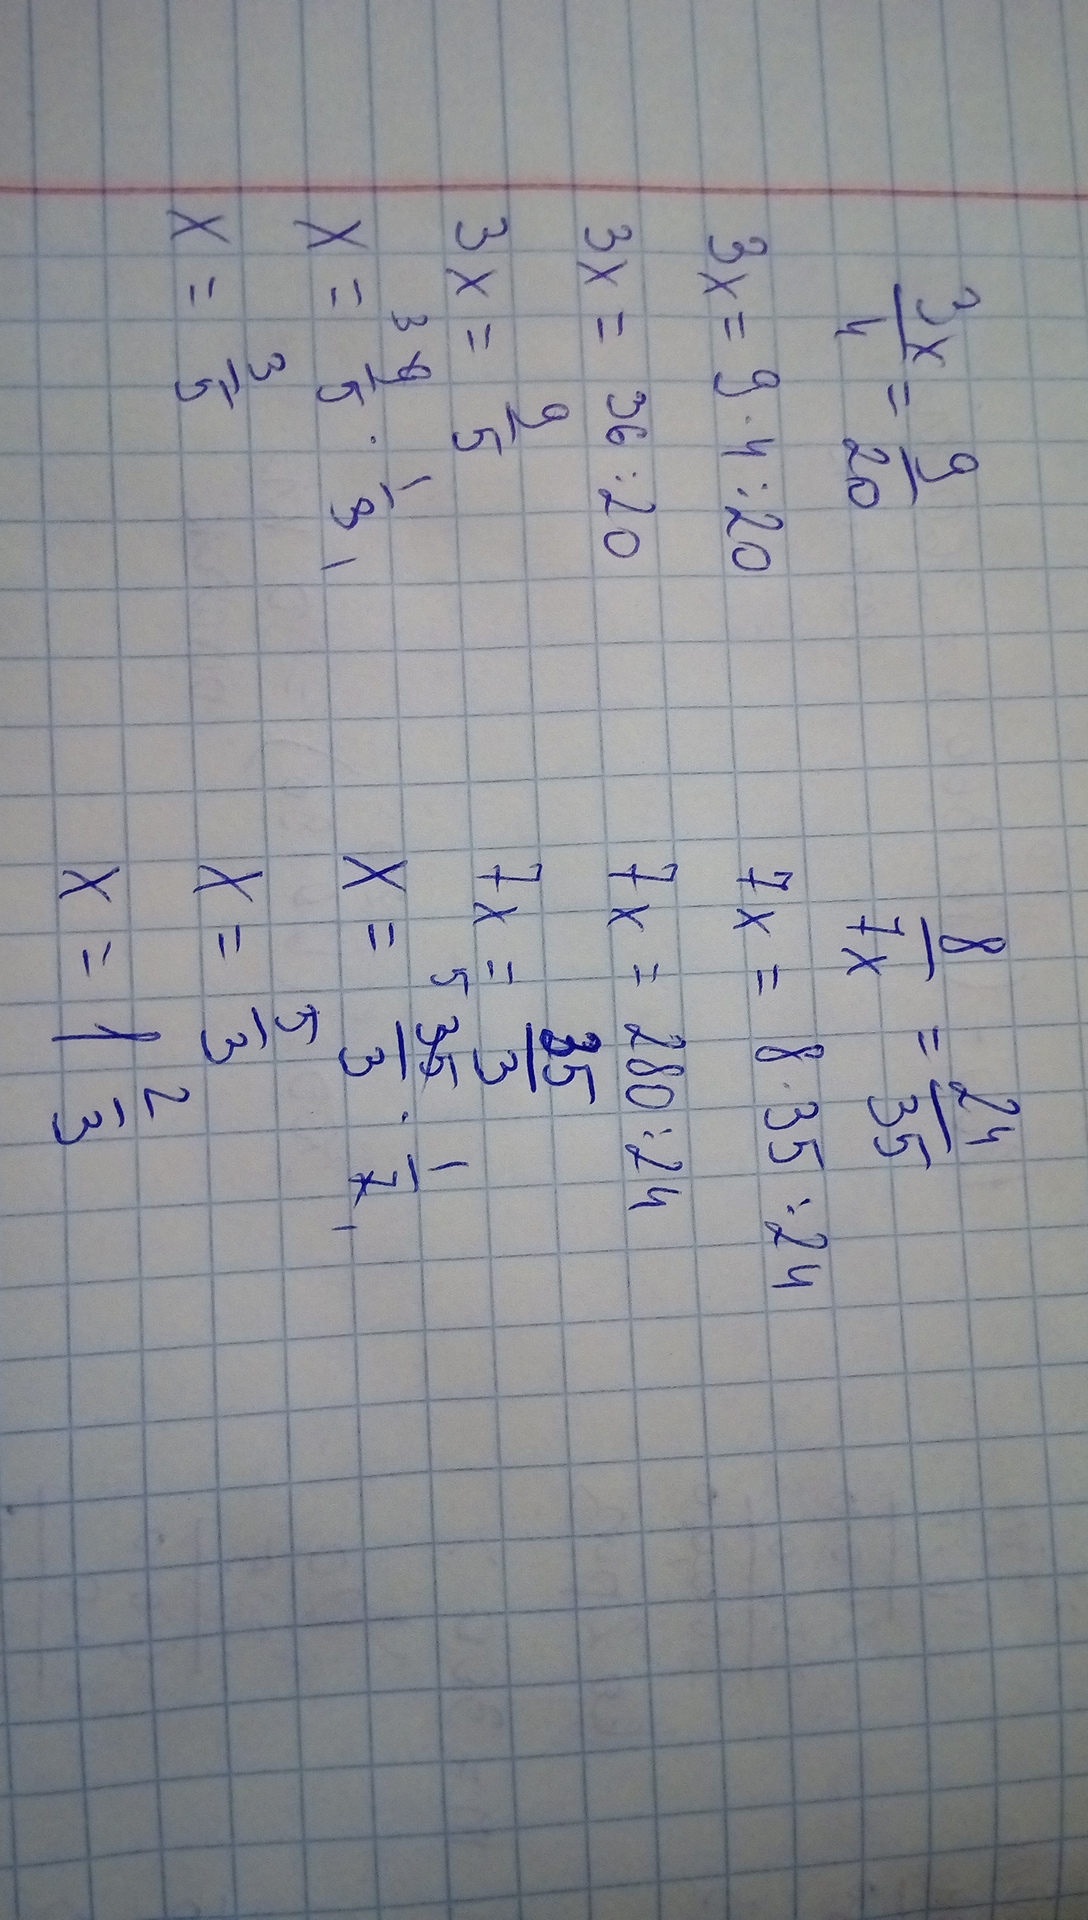 3x/4 = 9/20
3x = 9 · 4 : 20
3x = 36 : 20
3x = 9/5
x = 9/5 · 1/3 3 1
x = 3/5
8/7x = 24/35
7x = 8 · 35 : 24
7x = 280 : 24
7x = 35/3
x = 35/3 · 1/7 5 1
x = 5/3
x = 1 2/3